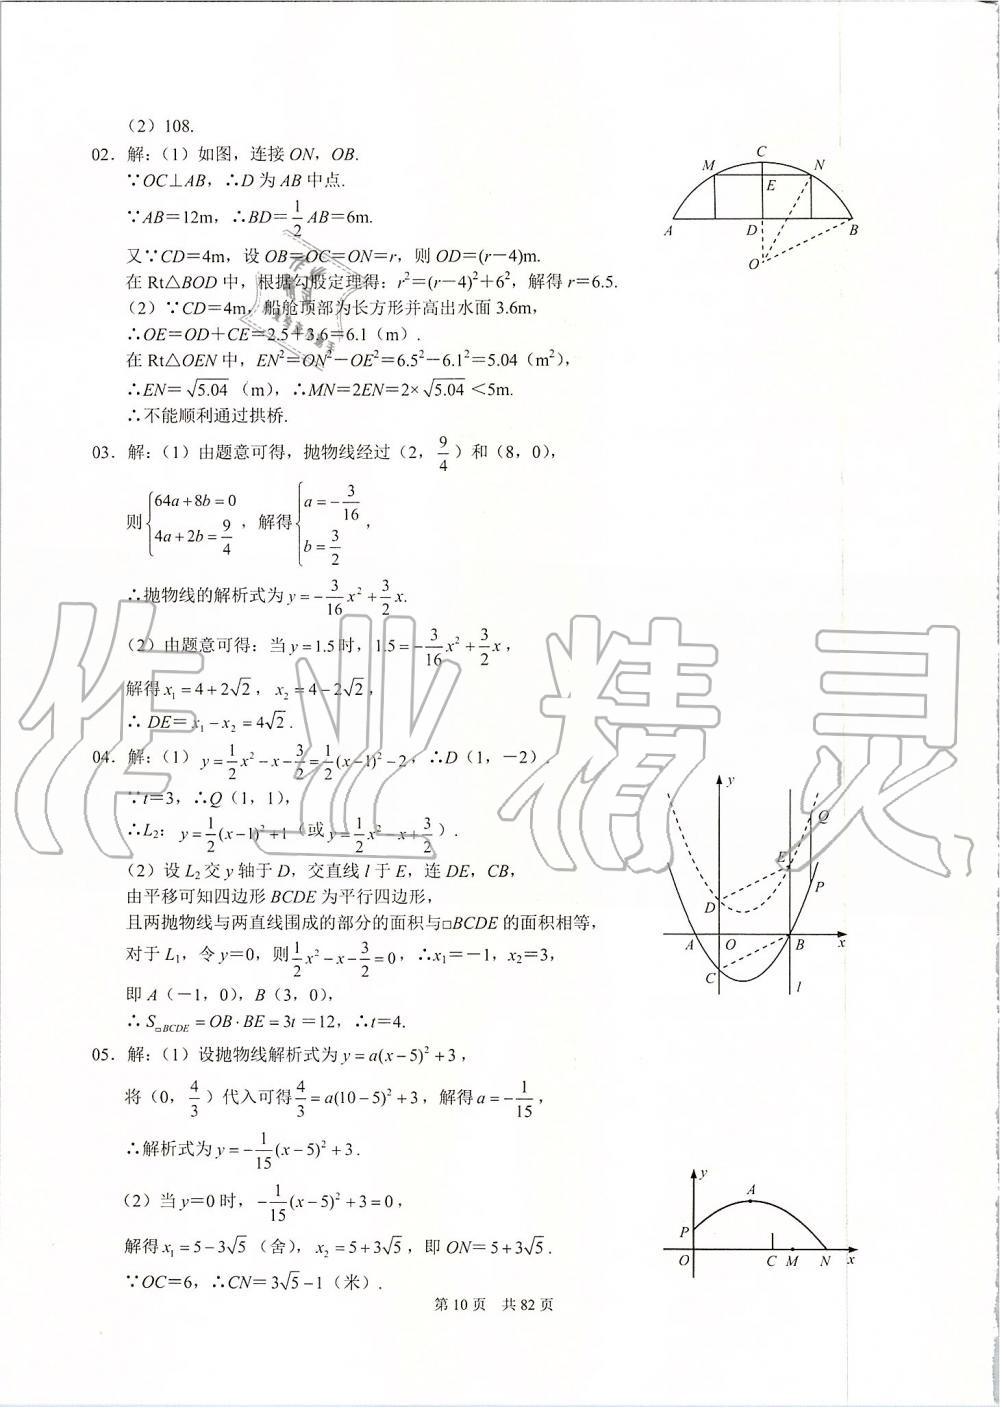 （2）108.
02．解：（1）如图，连接 ON，OB.
∵OC⊥AB，∴D 为 AB 中点.
∵AB＝12m，∴BD＝1/2 AB＝6m.
又∵CD＝4m，设 OB＝OC＝ON＝r，则 OD＝(r－4)m.
在 Rt△BOD 中，根据勾股定理得：r²＝(r－4)²＋6²，解得 r＝6.5.
（2）∵CD＝4m，船舱顶部为长方形并高出水面 3.6m，
∴OE＝OD＋CE＝2.5＋3.6＝6.1（m）.
在 Rt△OEN 中，EN²＝ON²－OE²＝6.5²－6.1²＝5.04（m²），
∴EN＝√5.04（m），∴MN＝2EN＝2×√5.04＜5m.
∴不能顺利通过拱桥.
M C N
E
A D B
O
03．解：（1）由题意可得，抛物线经过（2，9/4）和（8，0），
则{64a+8b=0, 4a+2b=9/4，解得{a=-3/16, b=3/2，
∴抛物线的解析式为 y=-3/16x²+3/2x.
（2）由题意可得：当 y=1.5 时，1.5=-3/16x²+3/2x，
解得 x₁=4+2√2，x₂=4-2√2，
∴ DE＝x₁-x₂=4√2.
04．解：（1）y=1/2x²-x-3/2=1/2(x-1)²-2，∴D（1，－2）.
∵t＝3，∴Q（1，1），
∴L₂：y=1/2(x-1)²+1（或 y=1/2x²-x+3/2）.
（2）设 L₂交 y 轴于 D，交直线 l 于 E，连 DE，CB，
由平移可知四边形 BCDE 为平行四边形，
且两抛物线与两直线围成的部分的面积与□BCDE 的面积相等，
对于 L₁，令 y＝0，则1/2x²-x-3/2=0，∴x₁＝－1，x₂＝3，
即 A（－1，0），B（3，0），
∴ S□BCDE＝OB·BE＝3t＝12，∴t＝4.
y
Q
E
P
D
A O B x
C
l
05．解：（1）设抛物线解析式为 y=a(x-5)²+3，
将（0，4/3）代入可得4/3=a(10-5)²+3，解得 a=-1/15，
∴解析式为 y=-1/15(x-5)²+3.
（2）当 y＝0 时，-1/15(x-5)²+3=0，
解得 x₁=5-3√5（舍），x₂=5+3√5，即 ON＝5+3√5.
∵OC＝6，∴CN＝3√5-1（米）.
y
A
P
O C M N x
第 10 页 共 82 页
作业精灵